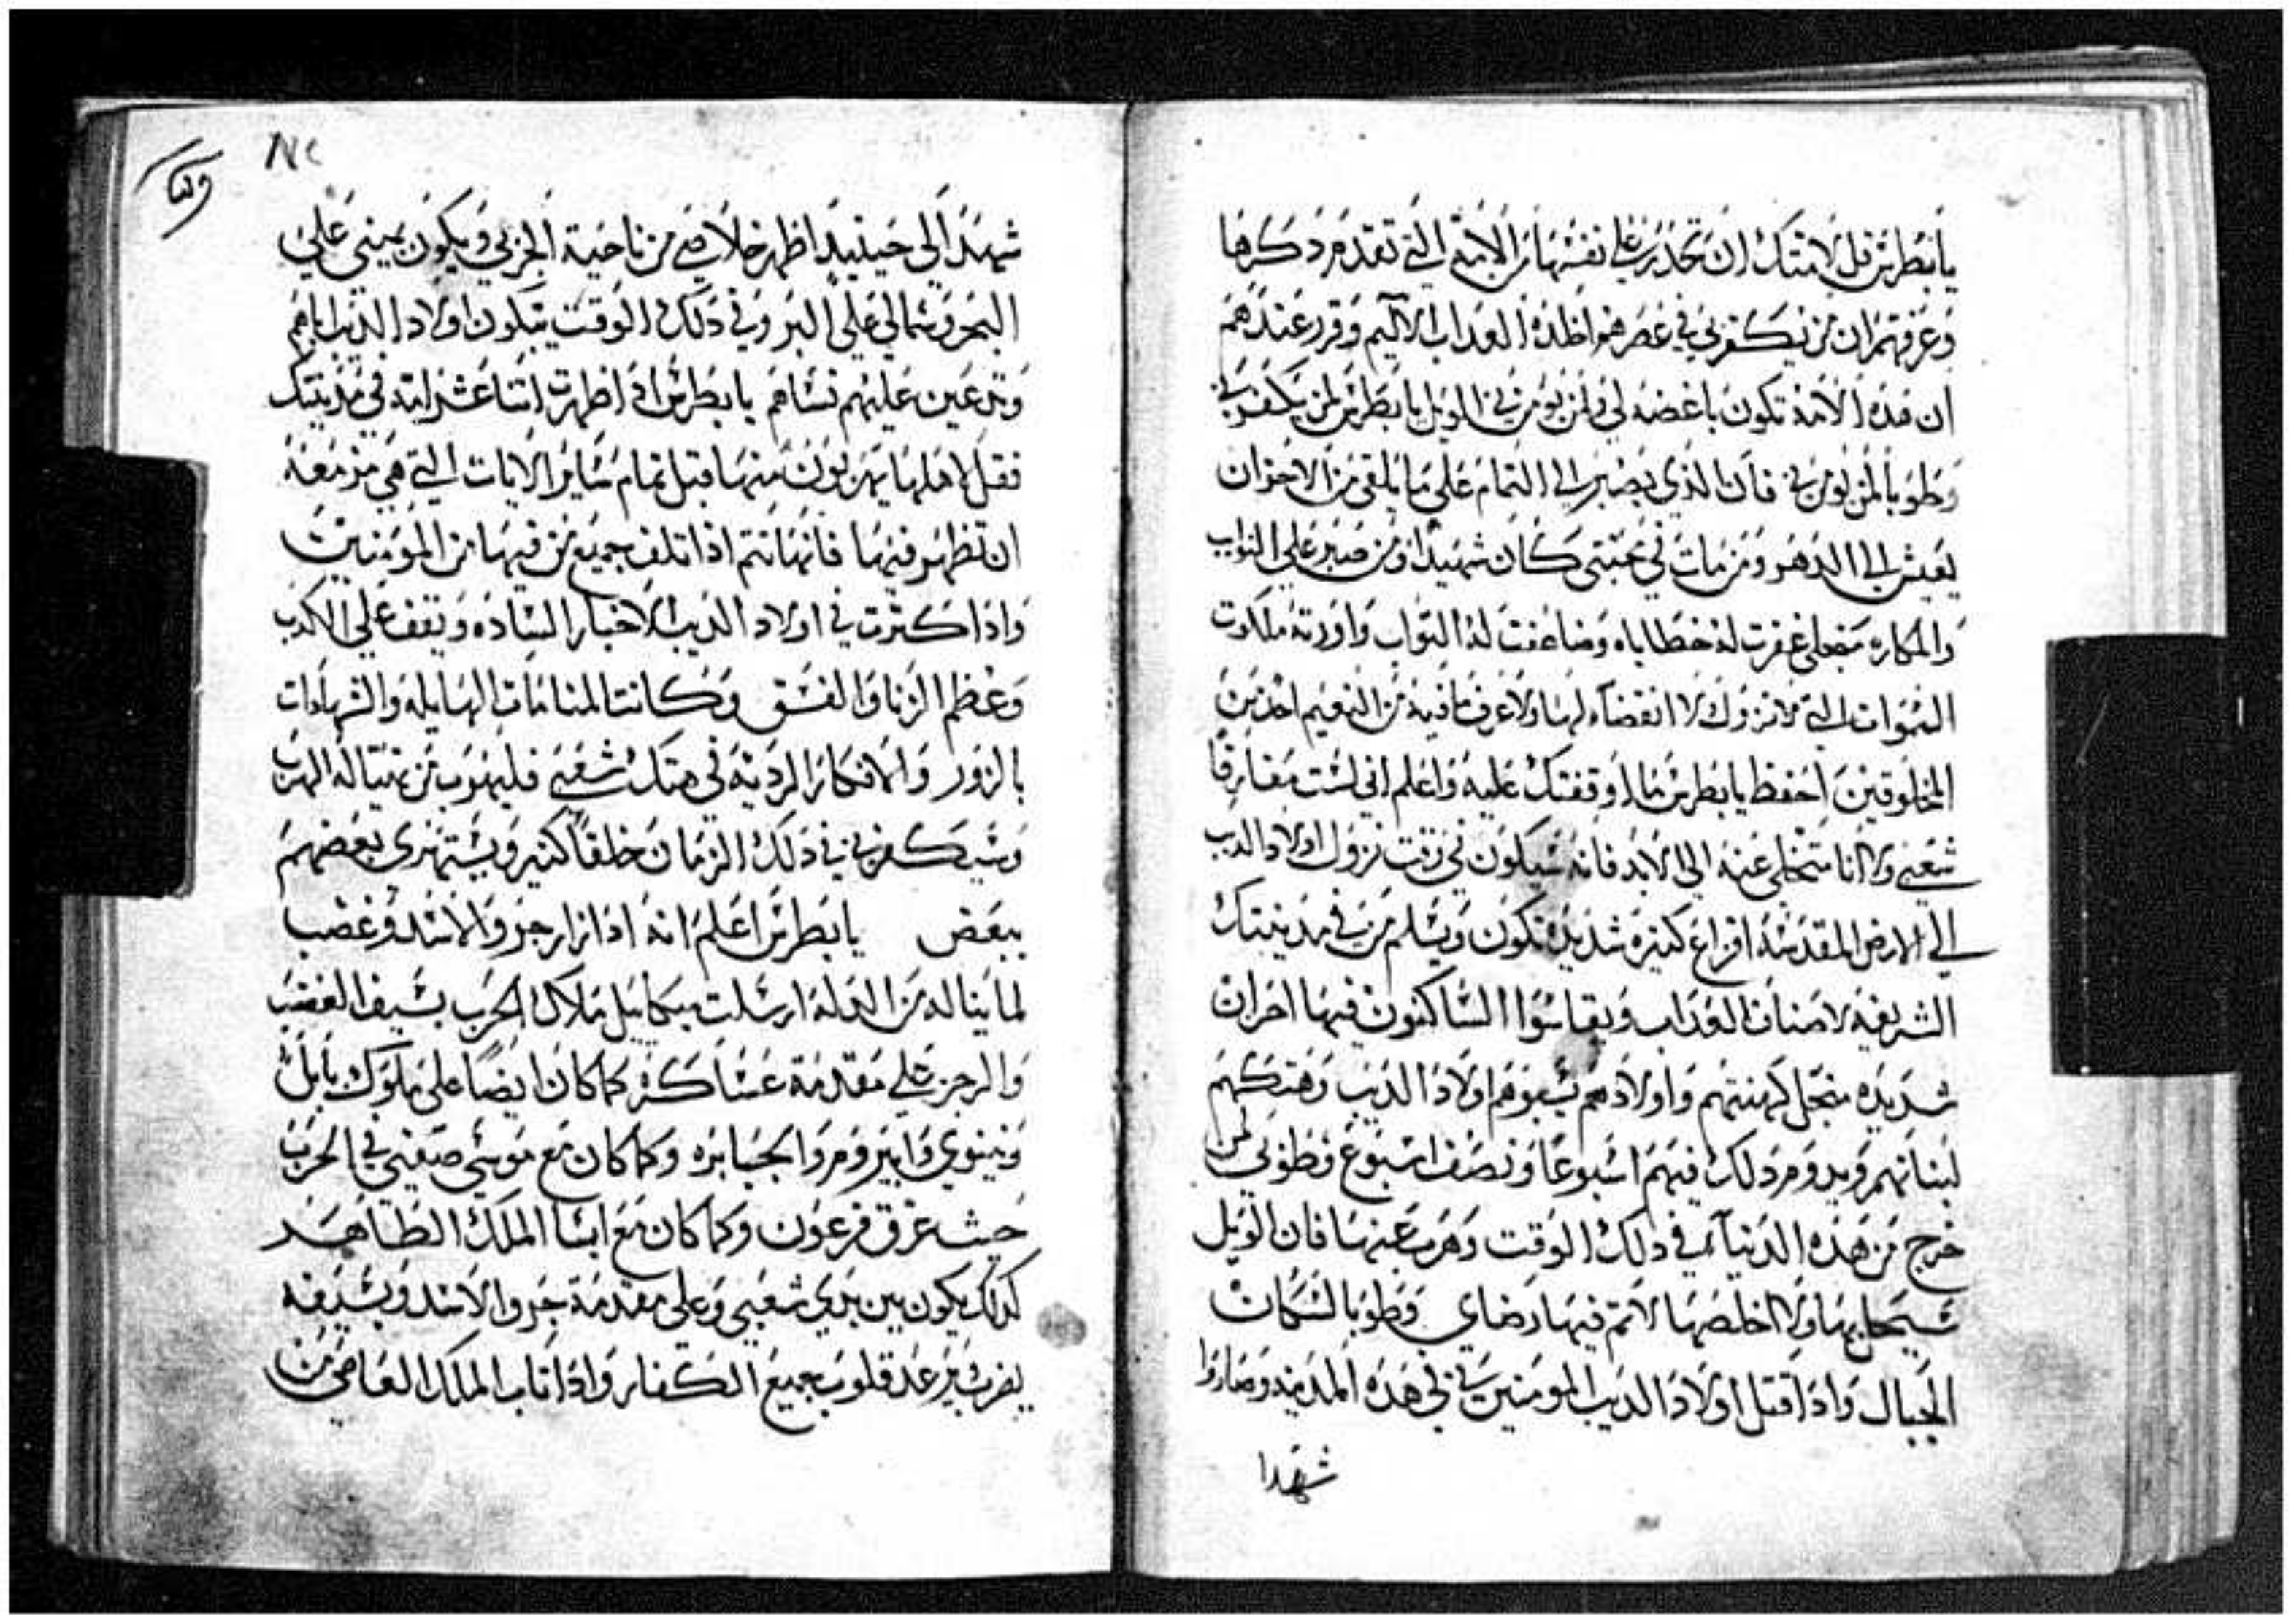 يابطرس قل لامتك ان تحذر على نفسها من الامة التي تقدم ذكرها
وعرفهم ان من يكفر بي في عصر هولاء ظله العداب الاليم وقرر عندهم
ان هذه الامة تكون باغضه لي ولمن يومن بي الويل يا بطرس لمن يكفر بي
وطوبا لمن يومن بي فان الذي يصبر الى التمام على ما يلقى من الاحزان
يعيش الى الدهر ومن مات في محبتي كان شهيدا ومن صبر على النوايب
والمكاره من اجلي غفرت له خطاياه وضاعفت له التواب واورتة ملكوت
السموات التي لا تزول ولا انقضاء لها ولا عرف ما فيه من النعيم احد من
المخلوقين احفظ يا بطرس ما اوقفتك عليه واعلم اني لست مفارقا
شعبي ولا انا متخلي عنه الى الابد فانه سيكون في وقت نزول اولاد الديب
الى الارض المقدسة افزاع كثيره شديده تكون ويسلم من في مدينتك
الشريفة لاصناف العداب ويقاسوا الساكنون فيها احزان
شديده من اجل كهنتهم واولادهم يسبوهم اولاد الديب وهتكهم
لبناتهم ويدوم ذلك فيهم اسبوعا ونصف اسبوع وطوبى لمن
خرج من هذه الدنيا في ذلك الوقت وهرب عنها فان الويل
سيحل بها ولا اخلصها لاتم فيها رضاي وطوبا لسكان
الجبال واذا قتل اولاد الديب المومنين بي في هذه المدينه وصاروا
شهدا
٨٢
شهدا لي حينيد اظهر خلاصي من ناحية الجزبي ويكون يميني على
البحر وشمالي على البر وفي ذلك الوقت يبكون اولاد الديب اباهم
وتدعين عليهم نساهم يا بطرس اذا ظهرت اتنا عشر اية في مدينتك
فقل لاهلها يهربون منها قبل تمام ساير الايات التي هي مزمعة
ان تظهر فيها فانها تتم اذا تلف جميع من فيها من المومنين
واذا كترت في اولاد الديب الاخبار الساده ويقف على الكدب
وعظم الزنا والفسق وكانت المنامات الهايله والشهادات
بالزور والافكار الردية في هتك شعبي فليهرب من تهيا له الهرب
وسيكفر بي في ذلك الزمان خلقا كثير ويستهزى بعضهم
ببعض يا بطرس اعلم انه اذا زار جرو الاسد وغضب
لما يناله من الدله ارسلت ميكاييل ملاك الحرب بسيف الغضب
والرجز على مقدمة عساكره كما كان ايضا على ملوك بابل
ونينوي وابيروم والجبابره وكما كان مع موسى صفيي في الحرب
حيث غرق فرعون وكما كان مع اسا الملك الطاهر
كدلك يكون بين يدي شعبي وعلى مقدمة جرو الاسد وبسيفه
يضرب يرعد قلوب جميع الكفار واذا تاب الملك العاصي من